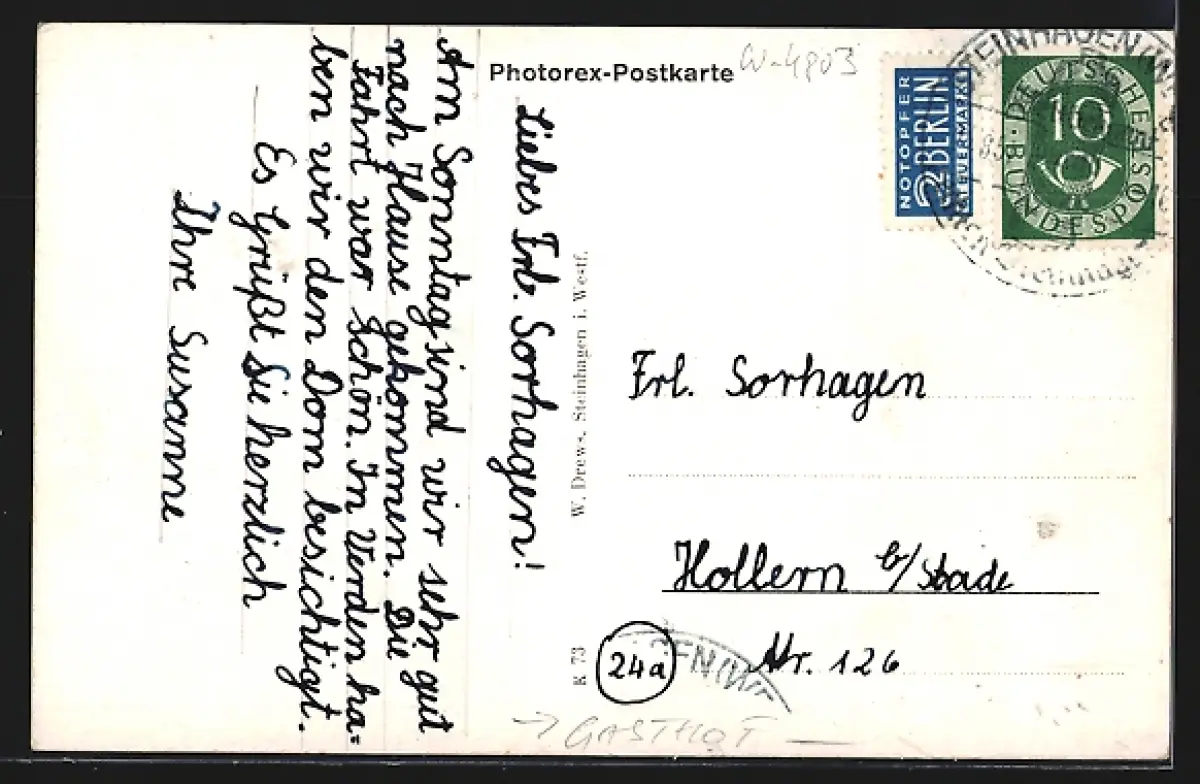 Photorex-Postkarte
W-4803
NOTOPFER
2 BERLIN
STEUERMARKE
DEUTSCHE
10
BUNDESPOST
STEINHAGEN (W
Liebes Frl. Sorhagen!
Am Sonntag sind wir sehr gut
nach Hause gekommen. Die
Fahrt war schön. In Verden ha=
ben wir den Dom besichtigt.
Es Grüßt Sie herzlich
Ihre Susanne
W. Drews, Steinhagen i. Westf.
K 73
Frl. Sorhagen
Hollern b/Stade
24a
Nr. 126
GEN(W
→ GASTHOF